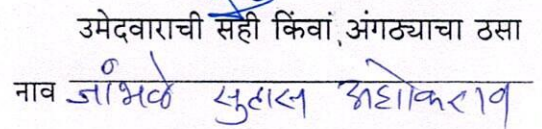 उमेदवाराची सही किंवा अंगठ्याचा ठसा
नाव जांभळे सुहास अशोकराव